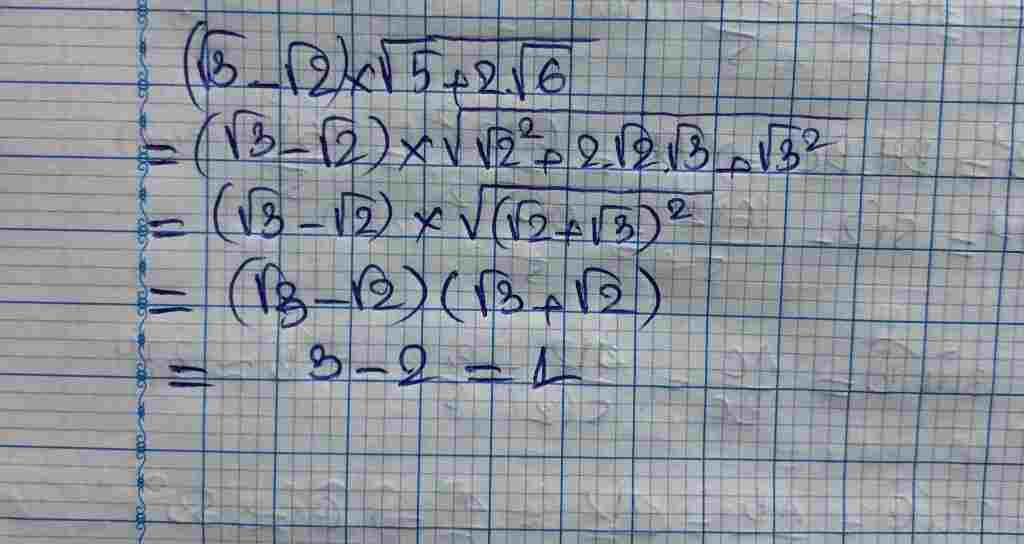 (√3 - √2) × √(5 + 2√6)
= (√3 - √2) × √(√2² + 2.√2.√3 + √3²)
= (√3 - √2) × √((√2 + √3)²)
= (√3 - √2)(√3 + √2)
= 3 - 2 = 1